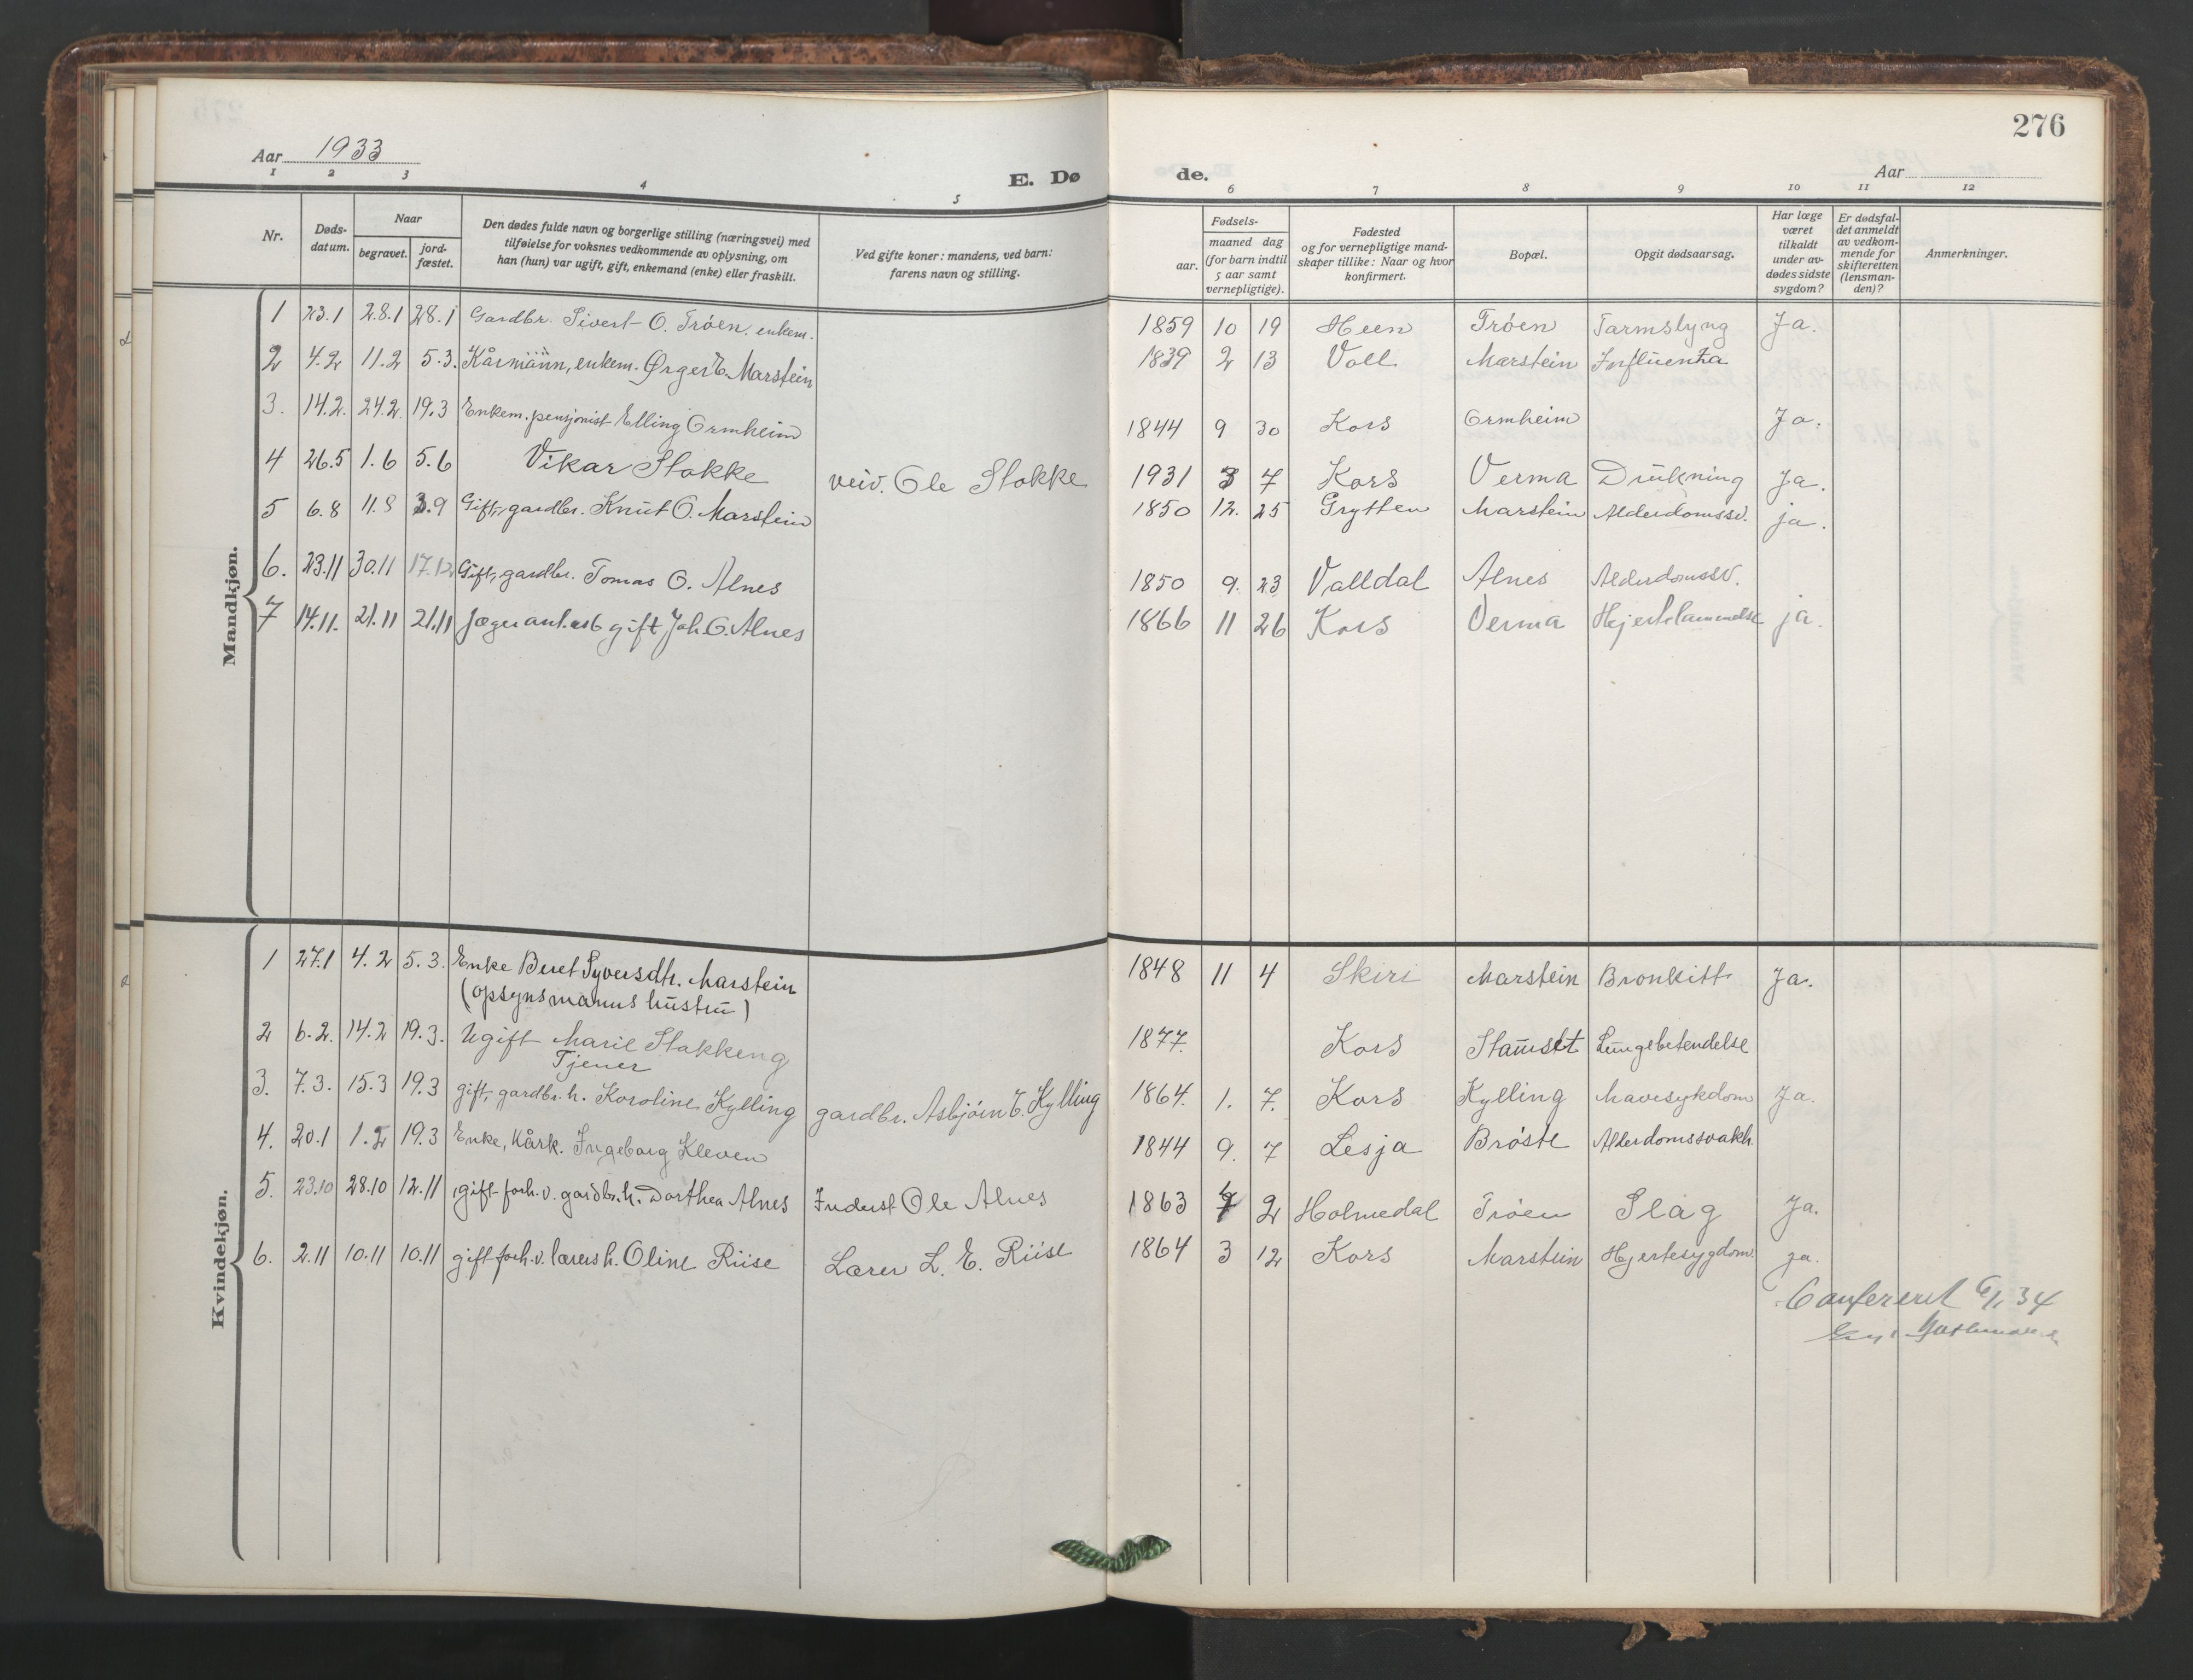 276
Aar 1933
E. Døde.
Aar
1 2 3 4 5 6 7 8 9 10 11 12
Nr. | Døds-datum. | Naar begravet. | jord-fæstet. | Den dødes fulde navn og borgerlige stilling (næringsvei) med tilføielse for voksnes vedkommende av oplysning, om han (hun) var ugift, gift, enkemand (enke) eller fraskilt. | Ved gifte koner: mandens, ved barn: farens navn og stilling. | Fødsels- aar. | maaned dag (for barn indtil 5 aar samt vernepligtige). | Fødested og for vernepligtige mand-skaper tillike: Naar og hvor konfirmert. | Bopæl. | Opgit dødsaarsag. | Har læge været tilkaldt under av-dødes sidste sygdom? | Er dødsfal-det anmeldt av vedkom-mende for skifteretten (lensman-den)? | Anmerkninger.
Mandkjøn.
1 23.1 28.1 28.1 Gardbr. Sivert O. Trøen. enkem. 1859 10 19 Heen Trøen Tarmslyng Ja.
2 4.2 11.2 5.3. Kårmann, enkem. Ørger E. Marstein 1839 2 13 Voll Marstein Influenza
3. 14.2. 24.2. 19.3 Enkem. pensjonist Elling Ormheim 1844 9 30 Kors Ormheim Ja.
4 26.5 1.6 5.6 Vikar Stokke veiv. Ole Stokke 1931 3 7 Kors Verma Drukning Ja.
5 6.8 11.8 3.9 Gift, gardbr. Knut O. Marstein 1850 12. 25 Grytten Marstein Alderdomssv. ja.
6. 23.11 30.11 17.12 Gift, gardbr. Tomas O. Alnes 1850 9. 23 Valldal Alnes Alderdomssv.
7 14.11. 21.11 21.11 gift Joh. O. Alnes 1866 11 26 Kors Verma Hjertelammelse ja.
Kvindekjøn.
1 27.1 4.2 5.3. Enke Beret Syversdtr. Marstein 1848 11 4 Skiri Marstein Bronkitt Ja.
(opsynsmanns hustru)
2 6.2. 14.2 19.3. Ugift Marie Stokkeng 1877. Kors Stauset Lungebetendelse
Tjener
3. 7.3. 15.3 19.3 gift, gardbr. h. Koroline Kylling gardbr. Asbjørn E. Kylling 1864. 1. 7. Kors Kylling Mavesykdom Ja.
4. 20.1 1.2 19.3 Enke, Kårk. Ingeborg Kleven 1844 9. 7 Lesja Brøste Alderdomssvakh.
5. 23.10 28.10 12.11 gift forh. v. gardbr. h. Dorthea Alnes Inderst Ole Alnes 1863 2 Holmedal Trøen Slag Ja.
6. 2.11 10.11 10.11 gift forh. v. lærers h. Oline Riise Lærer L. E. Riise 1864 3 12 Kors Marstein Hjertesygdom. ja.
Confereret 6/1 34